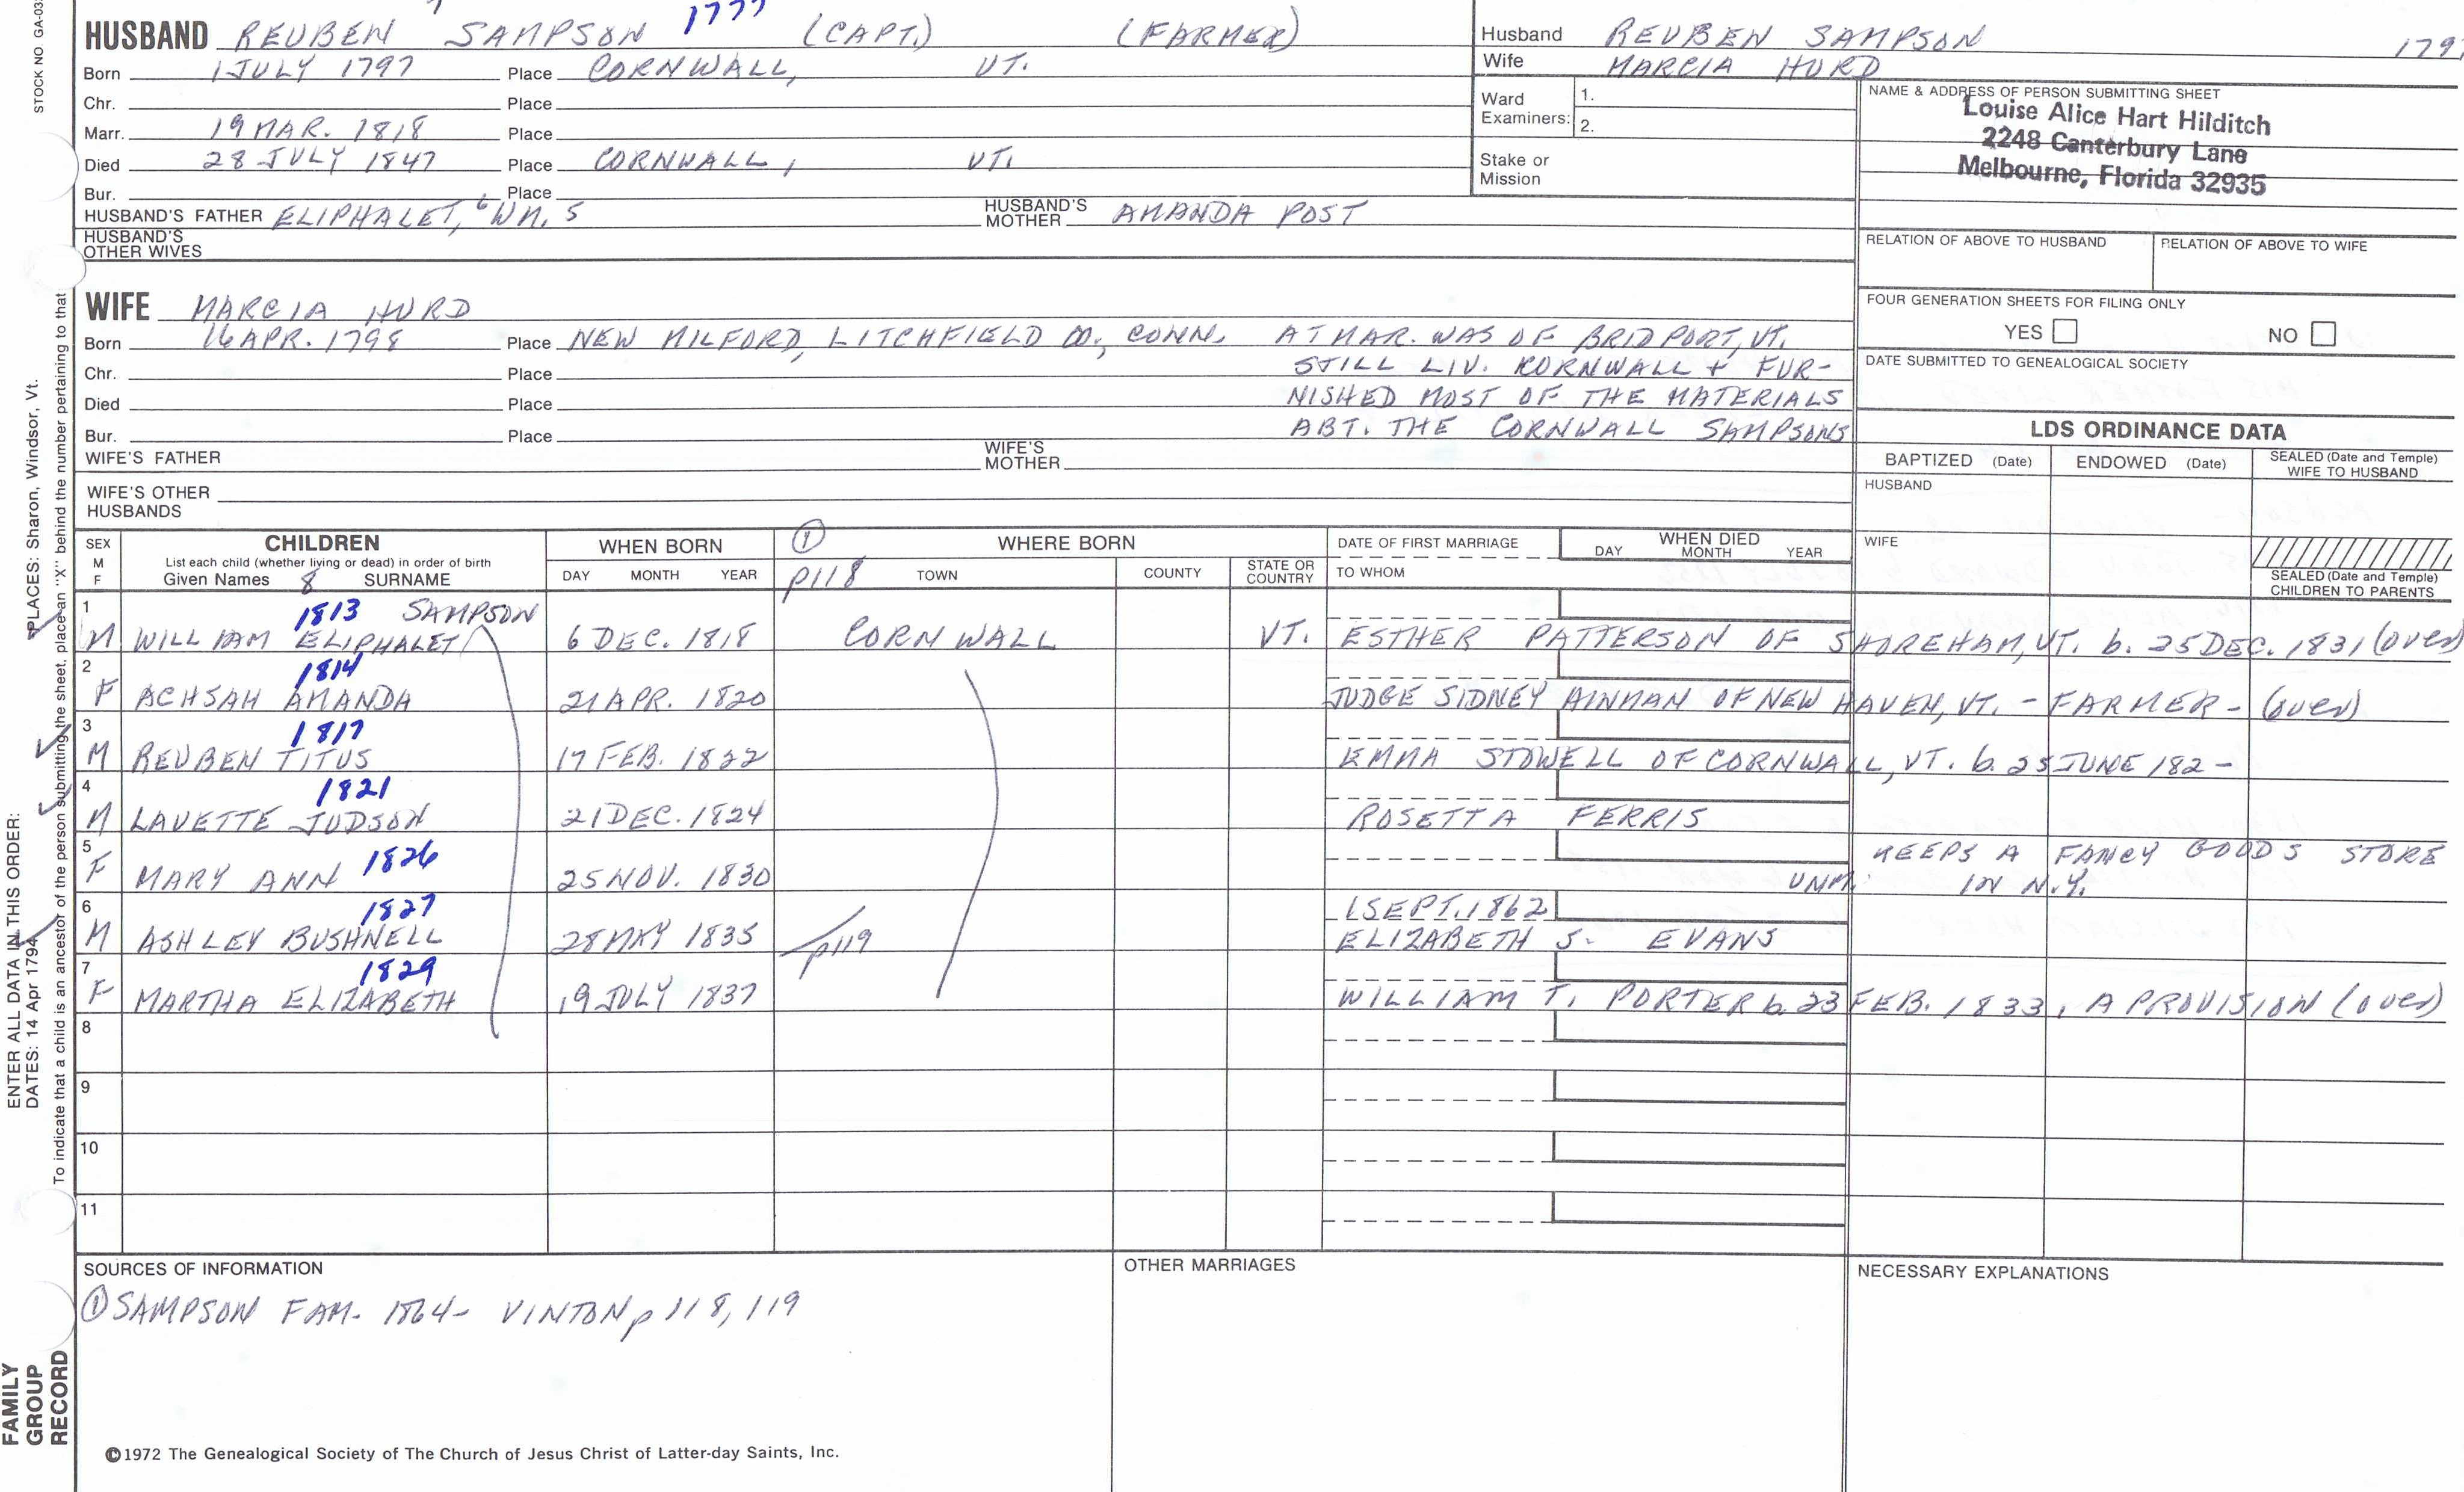 STOCK NO GA-03
HUSBAND REUBEN SAMPSON 1777 (CAPT.) (FARMER)
Born 1 JULY 1797 Place CORNWALL, VT.
Chr. Place
Marr. 19 MAR. 1818 Place
Died 28 JULY 1847 Place CORNWALL, VT.
Bur. Place
HUSBAND'S FATHER ELIPHALET, 6 WM. 5 HUSBAND'S MOTHER AMANDA POST
HUSBAND'S OTHER WIVES
Husband REUBEN SAMPSON 179
Wife MARCIA HURD
Ward Examiners: 1.
2.
Stake or Mission
NAME & ADDRESS OF PERSON SUBMITTING SHEET
Louise Alice Hart Hilditch
2248 Canterbury Lane
Melbourne, Florida 32935
RELATION OF ABOVE TO HUSBAND RELATION OF ABOVE TO WIFE
FOUR GENERATION SHEETS FOR FILING ONLY
YES NO
DATE SUBMITTED TO GENEALOGICAL SOCIETY
WIFE MARCIA HURD
Born 16 APR. 1798 Place NEW MILFORD, LITCHFIELD CO., CONN. AT MAR. WAS OF BRIDPORT, VT.
Chr. Place STILL LIV. KORNWALL + FUR-
Died Place NISHED MOST OF THE MATERIALS
Bur. Place ABT. THE CORNWALL SAMPSONS
WIFE'S FATHER WIFE'S MOTHER
WIFE'S OTHER HUSBANDS
LDS ORDINANCE DATA
BAPTIZED (Date) ENDOWED (Date) SEALED (Date and Temple) WIFE TO HUSBAND
HUSBAND
WIFE
SEALED (Date and Temple) CHILDREN TO PARENTS
SEX M F CHILDREN List each child (whether living or dead) in order of birth Given Names 8 SURNAME
WHEN BORN DAY MONTH YEAR
① p118 WHERE BORN TOWN COUNTY STATE OR COUNTRY
DATE OF FIRST MARRIAGE TO WHOM
WHEN DIED DAY MONTH YEAR
1 1813 SAMPSON
M WILLIAM ELIPHALET 6 DEC. 1818 CORNWALL VT. ESTHER PATTERSON OF SHOREHAM, VT. b. 25 DEC. 1831 (over)
2 1814
F ACHSAH AMANDA 21 APR. 1820 JUDGE SIDNEY AINMAN OF NEW HAVEN, VT. - FARMER - (over)
3 1817
M REUBEN TITUS 17 FEB. 1822 EMMA STOWELL OF CORNWALL, VT. b. 25 JUNE 182-
4 1821
M LAVETTE JUDSON 21 DEC. 1824 ROSETTA FERRIS
5 1826 KEEPS A FANCY GOODS STORE
F MARY ANN 25 NOV. 1830 UNM. IN N.Y.
6 1827 1 SEPT. 1862
M ASHLEY BUSHNELL 28 MAY 1835 p119 ELIZABETH S. EVANS
7 1829
F MARTHA ELIZABETH 19 JULY 1837 WILLIAM T. PORTER b. 23 FEB. 1833, A PROVISION (over)
8
9
10
11
SOURCES OF INFORMATION
① SAMPSON FAM. 1864 - VINTON p 118, 119
OTHER MARRIAGES
NECESSARY EXPLANATIONS
©1972 The Genealogical Society of The Church of Jesus Christ of Latter-day Saints, Inc.
FAMILY GROUP RECORD
ENTER ALL DATA IN THIS ORDER:
DATES: 14 Apr 1794
PLACES: Sharon, Windsor, Vt.
To indicate that a child is an ancestor of the person submitting the sheet, place an "X" behind the number pertaining to that